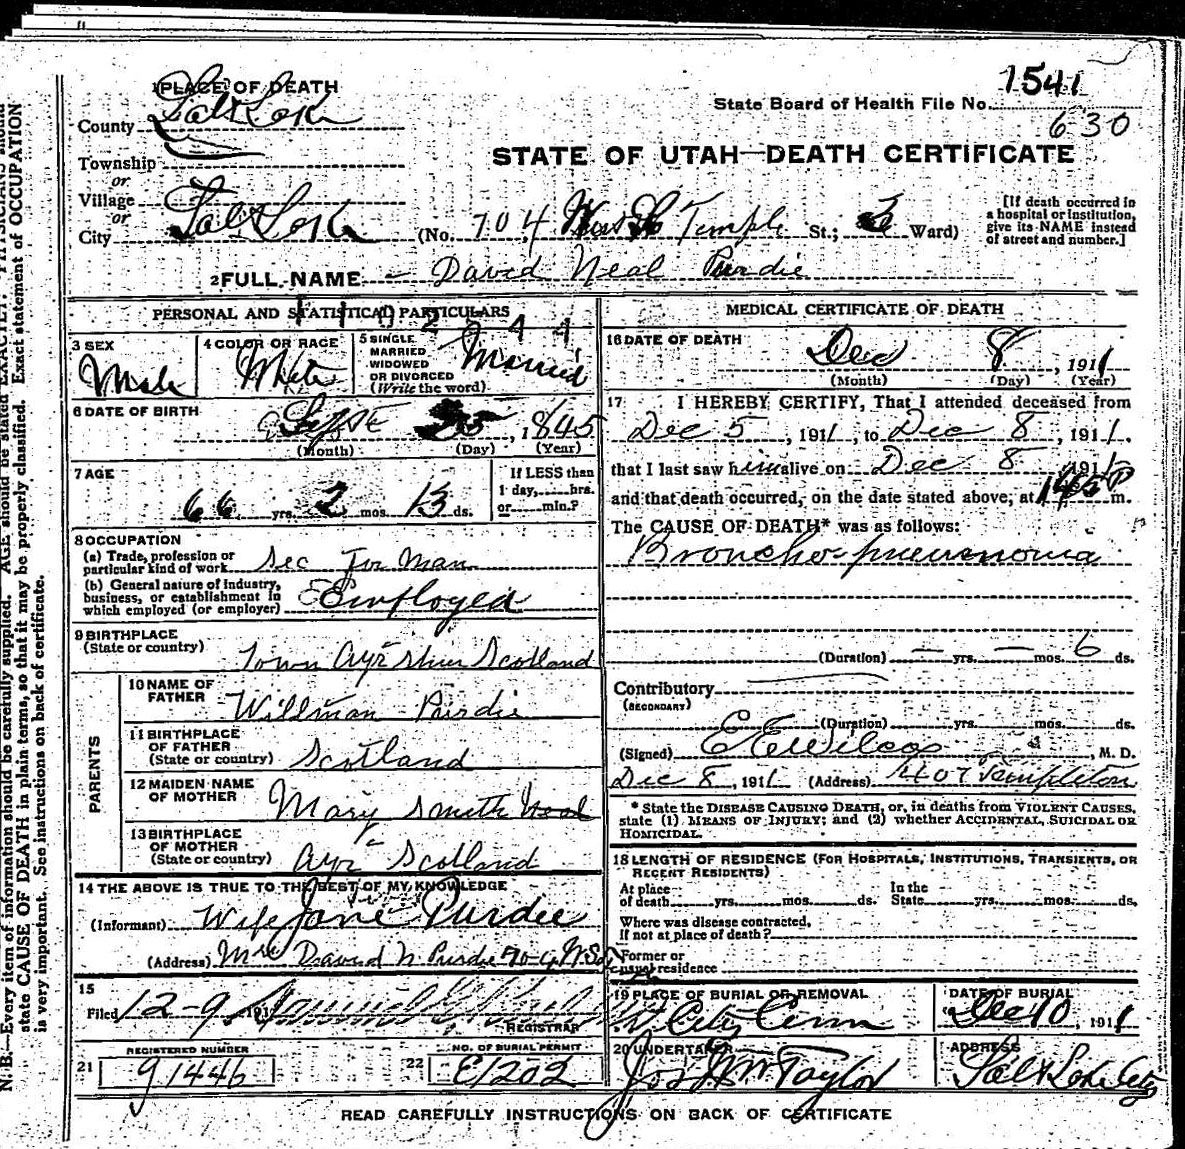 1 PLACE OF DEATH
1541
State Board of Health File No.
630
County Salt Lake
STATE OF UTAH—DEATH CERTIFICATE
Township
or
Village
or
City Salt Lake (No. 704 West So Temple St.; Ward)
[If death occurred in
a hospital or institution,
give its NAME instead
of street and number.]
2 FULL NAME David Neal Purdie
PERSONAL AND STATISTICAL PARTICULARS
3 SEX
Male
4 COLOR OR RACE
White
5 SINGLE
MARRIED
WIDOWED
OR DIVORCED
(Write the word)
Married
6 DATE OF BIRTH
Sept 25, 1845
(Month) (Day) (Year)
7 AGE
66 yrs. 2 mos. 13 ds.
If LESS than
1 day,......hrs.
or......min.?
8 OCCUPATION
(a) Trade, profession or
particular kind of work Sec for man
(b) General nature of industry,
business, or establishment in
which employed (or employer) Employed
9 BIRTHPLACE
(State or country)
Town Ayr Shire Scotland
PARENTS
10 NAME OF
FATHER
Willman Purdie
11 BIRTHPLACE
OF FATHER
(State or country) Scotland
12 MAIDEN NAME
OF MOTHER
Mary Smith Neal
13 BIRTHPLACE
OF MOTHER
(State or country) Ayr Scotland
14 THE ABOVE IS TRUE TO THE BEST OF MY KNOWLEDGE
(Informant) Wife Jane Purdie
(Address) Mrs David N Purdie 704 W So
15
Filed 12-9, 191
REGISTRAR
21 REGISTERED NUMBER
91446
22 NO. OF BURIAL PERMIT
E1202
MEDICAL CERTIFICATE OF DEATH
16 DATE OF DEATH
Dec 8, 1911
(Month) (Day) (Year)
17 I HEREBY CERTIFY, That I attended deceased from
Dec 5, 1911, to Dec 8, 1911.
that I last saw him alive on Dec 8, 1911
and that death occurred, on the date stated above, at P m.
The CAUSE OF DEATH* was as follows:
Broncho-pneumonia
(Duration) — yrs. — mos. 6 ds.
Contributory
(SECONDARY)
(Duration) yrs. mos. ds.
(Signed) E E Wilcox, M. D.
Dec 8, 1911 (Address) 407 Templeton
* State the DISEASE CAUSING DEATH, or, in deaths from VIOLENT CAUSES,
state (1) MEANS OF INJURY; and (2) whether ACCIDENTAL, SUICIDAL OR
HOMICIDAL.
18 LENGTH OF RESIDENCE (FOR HOSPITALS, INSTITUTIONS, TRANSIENTS, OR
RECENT RESIDENTS)
At place
of death yrs. mos. ds.
In the
State yrs. mos. ds.
Where was disease contracted,
if not at place of death?
Former or
usual residence
19 PLACE OF BURIAL OR REMOVAL
City Cem
DATE OF BURIAL
Dec 10, 1911
20 UNDERTAKER
Jos Wm Taylor
ADDRESS
Salt Lake City
READ CAREFULLY INSTRUCTIONS ON BACK OF CERTIFICATE
N. B.—Every item of information should be carefully supplied. AGE should be stated EXACTLY. PHYSICIANS should
state CAUSE OF DEATH in plain terms, so that it may be properly classified. Exact statement of OCCUPATION
is very important. See instructions on back of certificate.